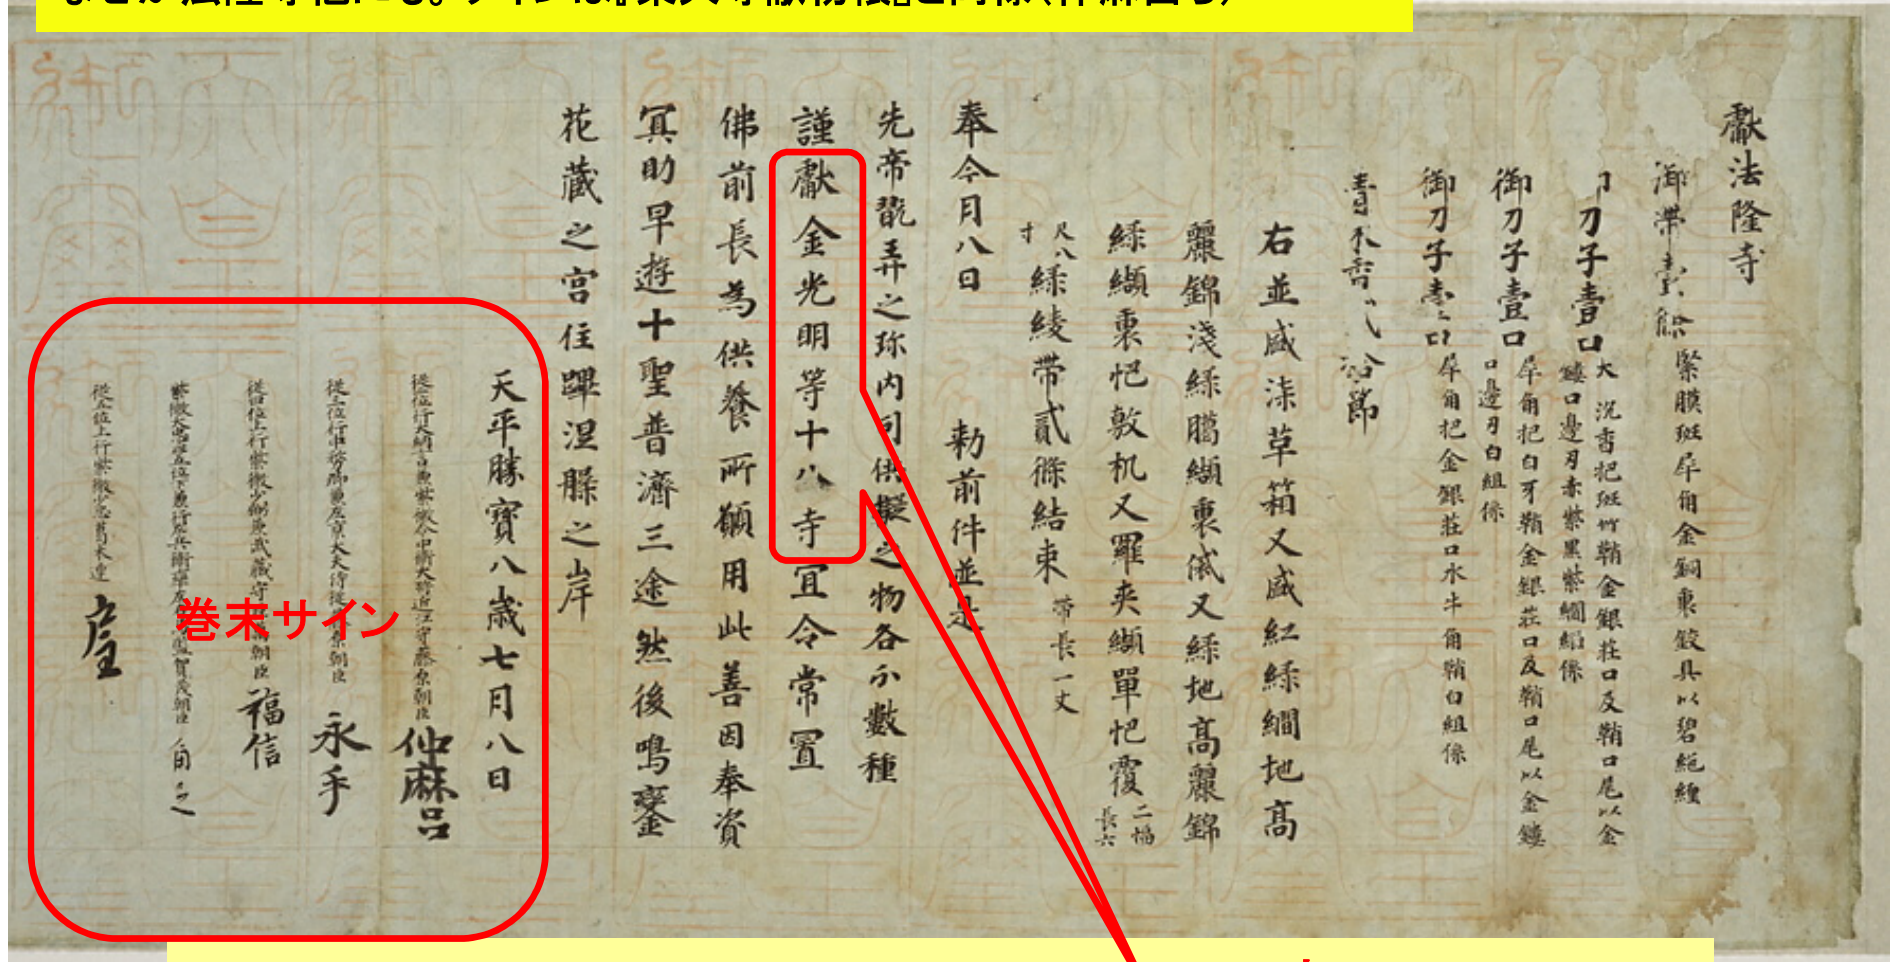 献法隆寺
御帯壹條 緊膜斑犀角金銅裏鉸具以碧絁纏
御刀子壹口 犬 沉香把斑竹鞘金銀荘口及鞘口尾以金
鏤口邊刃赤紫黒紫綢組係
御刀子壹口 犀角把白牙鞘金銀荘口及鞘口尾以金鏤
口邊刃白組係
御刀子壹口 犀角把金銀荘口水牛角鞘白組係
青木香 節
右並盛漆草箱又盛紅緑繝地高
麗錦淺緑臈纈裏俿又緑地高麗錦
緑纈裏帊敷机又羅夾纈單帊覆 二幅
長六
尺八
寸
緑綾帯貳條結束 帯長一丈
奉今月八日 勅前件並是
先帝翫弄之珎内司供擬之物各分數種
謹獻金光明等十八寺宜令常置
佛前長為供養所願用此善因奉資
冥助早遊十聖普濟三途然後鳴鑾
花藏之宮住蹕涅槃之岸
天平勝寶八歳七月八日
従二位行大納言兼紫微令中衛大将近江守藤原朝臣 仲麻呂
永手
従四位上行紫微少弼兼武藏守 朝臣 福信
賀茂朝臣 角足
従五位上行紫微少忠葛木連 戸主
巻末サイン